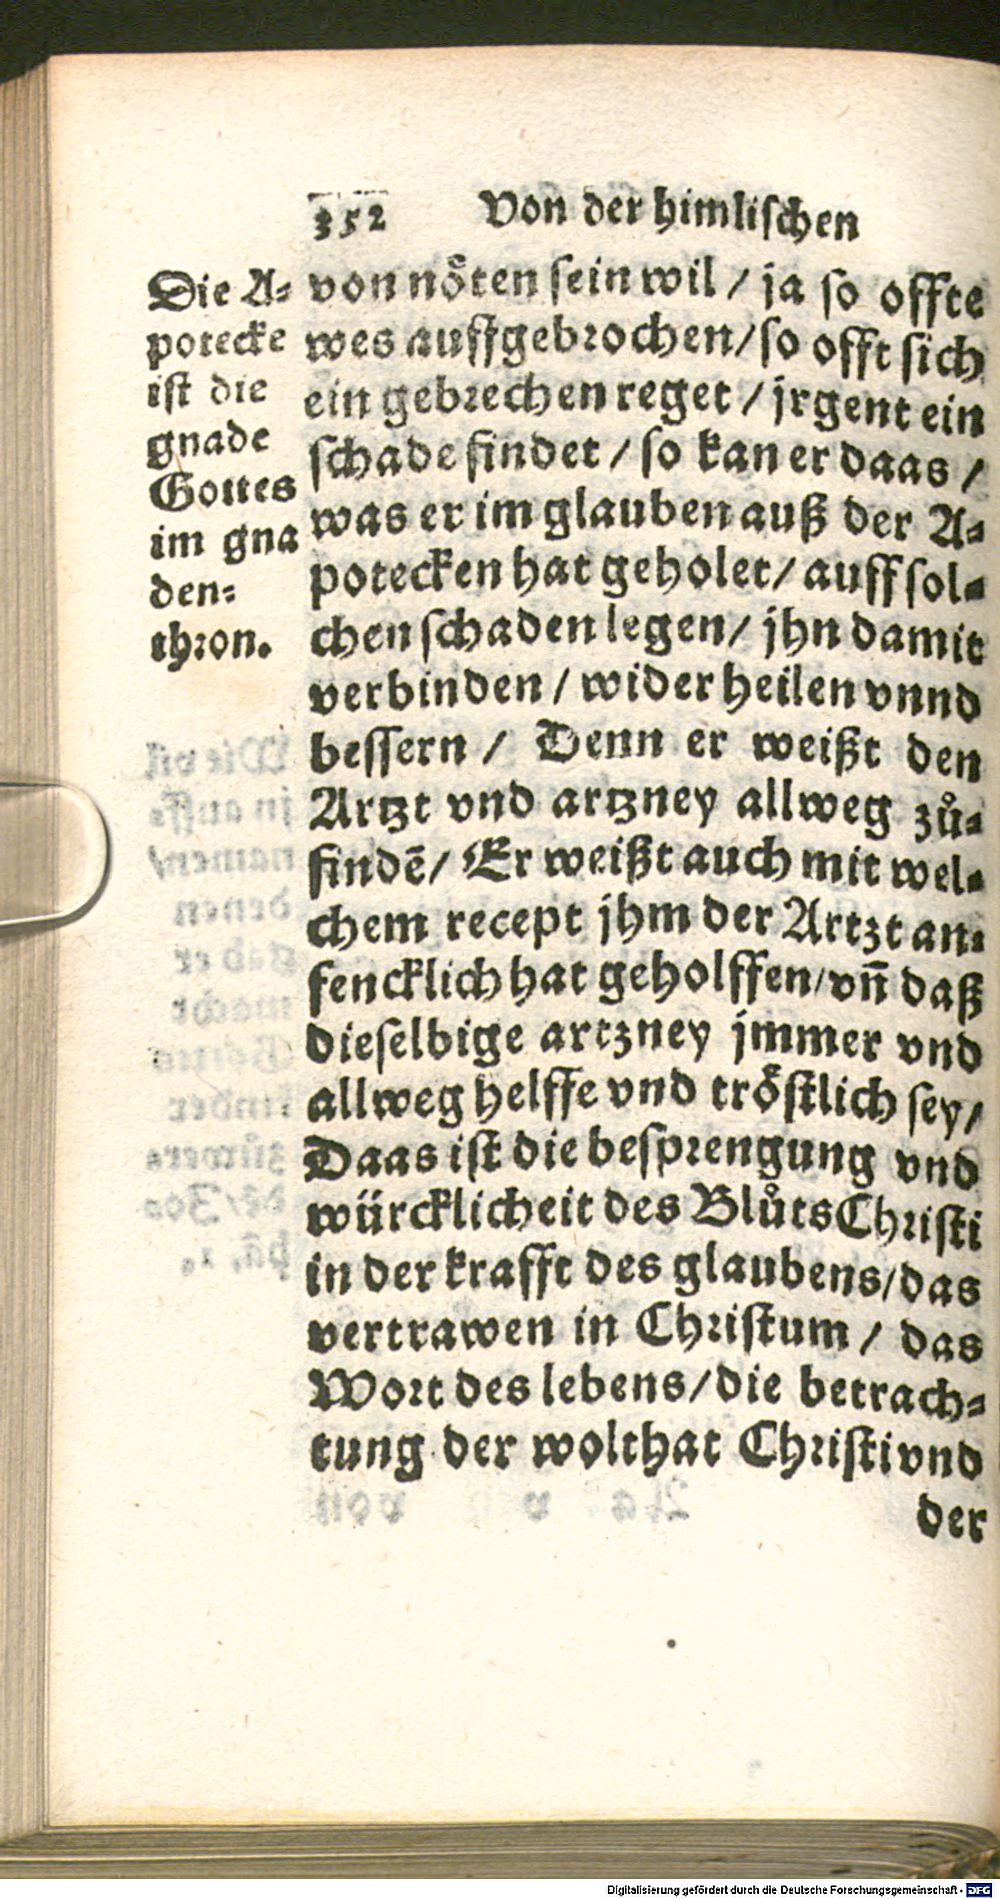 352 Von der himliſchen
Die A⸗
potecke
iſt die
gnade
Gottes
im gna
den⸗
thron.
von nöten ſein wil / ja ſo offte
wes auffgebrochen / ſo offt ſich
ein gebrechen reget / jrgent ein
ſchade findet / ſo kan er daas /
was er im glauben auß der A⸗
potecken hat geholet / auff ſol⸗
chen ſchaden legen / jhn damit
verbinden / wider heilen vnnd
beſſern / Denn er weißt den
Artzt vnd artzney allweg zů⸗
findē / Er weißt auch mit wel⸗
chem recept jhm der Artzt an⸗
fencklich hat geholffen / vn̄ daß
dieſelbige artzney jmmer vnd
allweg helffe vnd tröſtlich ſey /
Daas iſt die beſprengung vnd
würcklicheit des Blůts Chriſti
in der krafft des glaubens / das
vertrawen in Chriſtum / das
Wort des lebens / die betrach⸗
tung der wolthat Chriſti vnd
der
Digitalisierung gefördert durch die Deutsche Forschungsgemeinschaft - DFG